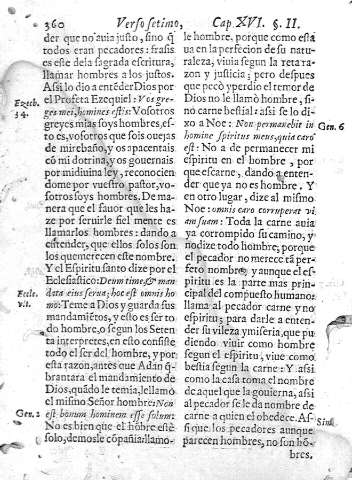 360 Verso setimo, Cap. XVI. §. II.
der que no auia justo, sino q̃
todos eran pecadores: frasis
es este dela sagrada escritura,
llamar hombres a los justos.
Assi lo dio a entẽder Dios por
el Profeta Ezequiel: Vos gre-
ges mei, homines estis: Vosotros
greyes mias soys hombres, es-
to es, vosotros que sois ouejas
de mi rebaño, y os apacentais
cõ mi dotrina, y os gouernais
por mi diuina ley, reconocien
dome por vuestro pastor, vo-
sotros soys hombres. De ma-
nera que el fauor que les ha-
ze por seruirle fiel mente es
llamarlos hombres: dando a
entender, que ellos solos son
los que merecen este nombre.
Y el Espiritu santo dize por el
Eclesiastico: Deum time, & man
data eius serua; hoc est omnis ho-
mo: Teme a Dios y guarda sus
mandamiẽtos, y esto es ser to
do hombre, o segun los Seten
ta interpretes, en esto consiste
todo el ser del hombre, y por
esta razon, antes que Adan q̃-
brantara el mandamiento de
Dios, quãdo le temia, le llamó
el mismo Señor hombre: Non
est bonum hominem esse solum:
No es bien que el hõbre estè
solo, demosle cõpañia: llamo-
Ezech.
34.
Eccle.
vlt.
Gen. 2
le hombre, porque como esta
ua en la perfecion de su natu-
raleza, viuia segun la reta ra-
zon y justicia; pero despues
que pecò y perdio el temor de
Dios no le llamò hombre, si-
no carne bestial: assi se lo di-
xo a Noe: Non permanebit in
homine spiritus meus, quia caro
est: No a de permanecer mi
espiritu en el hombre, por
que es carne, dando a enten-
der que ya no es hombre. Y
en otro lugar, dize al mismo
Noe: omnis caro corruperat vi
am suam: Toda la carne auia
ya corrompido su camino, y
no dize todo hombre; porque
el pecador no merece tã per-
feto nombre; y aunque el es-
piritu es la parte mas prin-
cipal del compuesto humano:
llama al pecador carne y no
espiritu; para darle a enten-
der su vileza y miseria, que pu
diendo viuir como hombre
segun el espiritu, viue como
bestia segun la carne: Y assi
como la casa toma el nombre
de aquel que la gouierna, assi
al pecador se le da nombre de
carne a quien el obedece. As-
si que los pecadores aunque
parecen hombres, no son hõ-
bres,
Gen. 6